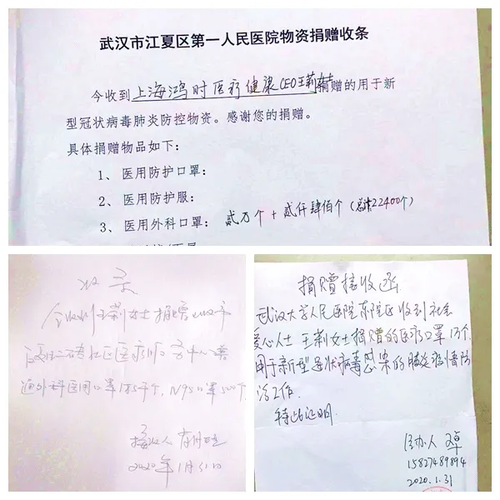 武汉市江夏区第一人民医院物资捐赠收条
今收到上海鸿时医疗健康CEO王莉女士捐赠的用于新
型冠状病毒肺炎防控物资。感谢您的捐赠。
具体捐赠物品如下：
1、 医用防护口罩：
2、 医用防护服：
3、 医用外科口罩： 贰万个 + 贰仟肆佰个（总计22400个）
收条
今收到王莉女士捐赠
通外科医用口罩 N95口罩
接收人
2020年1月31日
捐赠接收函
武汉大学人民医院东院区收到社会
爱心人士 王莉女士捐赠的医疗口罩1万个
用于新型冠状病毒感染的肺炎疫情防
治工作.
特此证明.
经办人
15827489894
2020.1.31